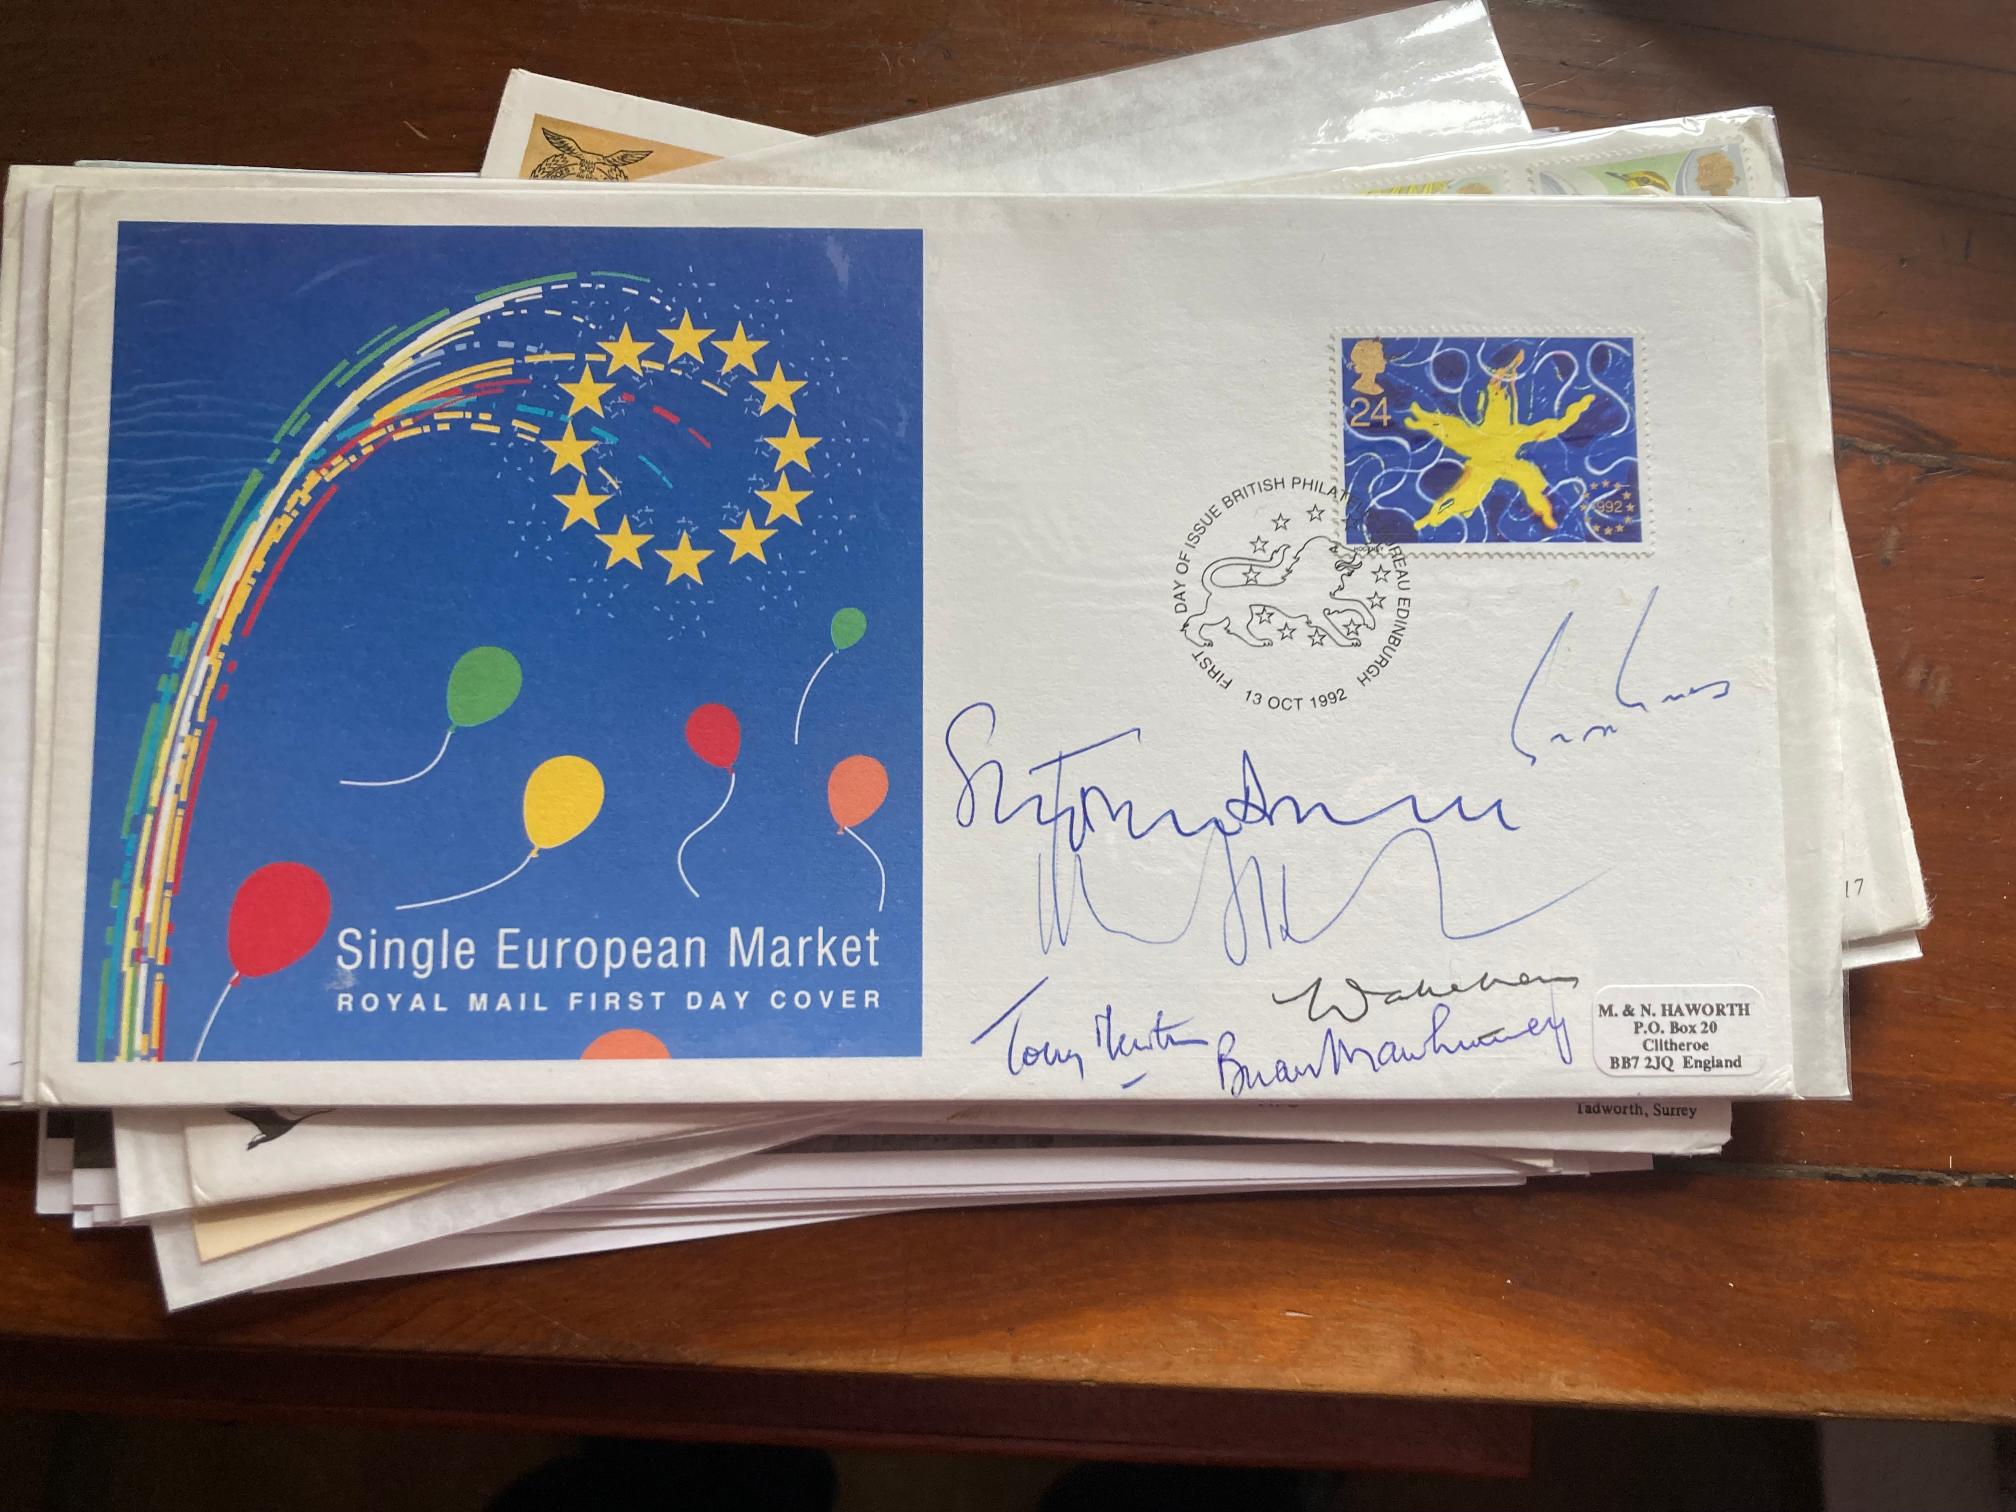 24
1992
HOCKNEY
FIRST DAY OF ISSUE BRITISH PHILATELIC BUREAU EDINBURGH
13 OCT 1992
Single European Market
ROYAL MAIL FIRST DAY COVER
Wakeham
Brian Mawhinney
Tony
M. & N. HAWORTH
P.O. Box 20
Clitheroe
BB7 2JQ England
17
Tadworth, Surrey